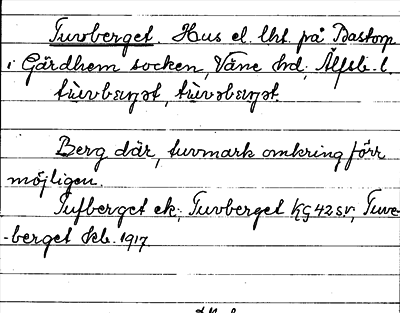 Tuvberget. Hus el. lht. på Bastorp
i Gärdhem socken, Väne hd, Älfsb. l.
tùvbærjət, tùvəbærjət.
Berg där, tuvmark omkring förr
möjligen.
Tufberget ek; Tuvberget KG 42 sv; Tuve
-berget kb. 1917